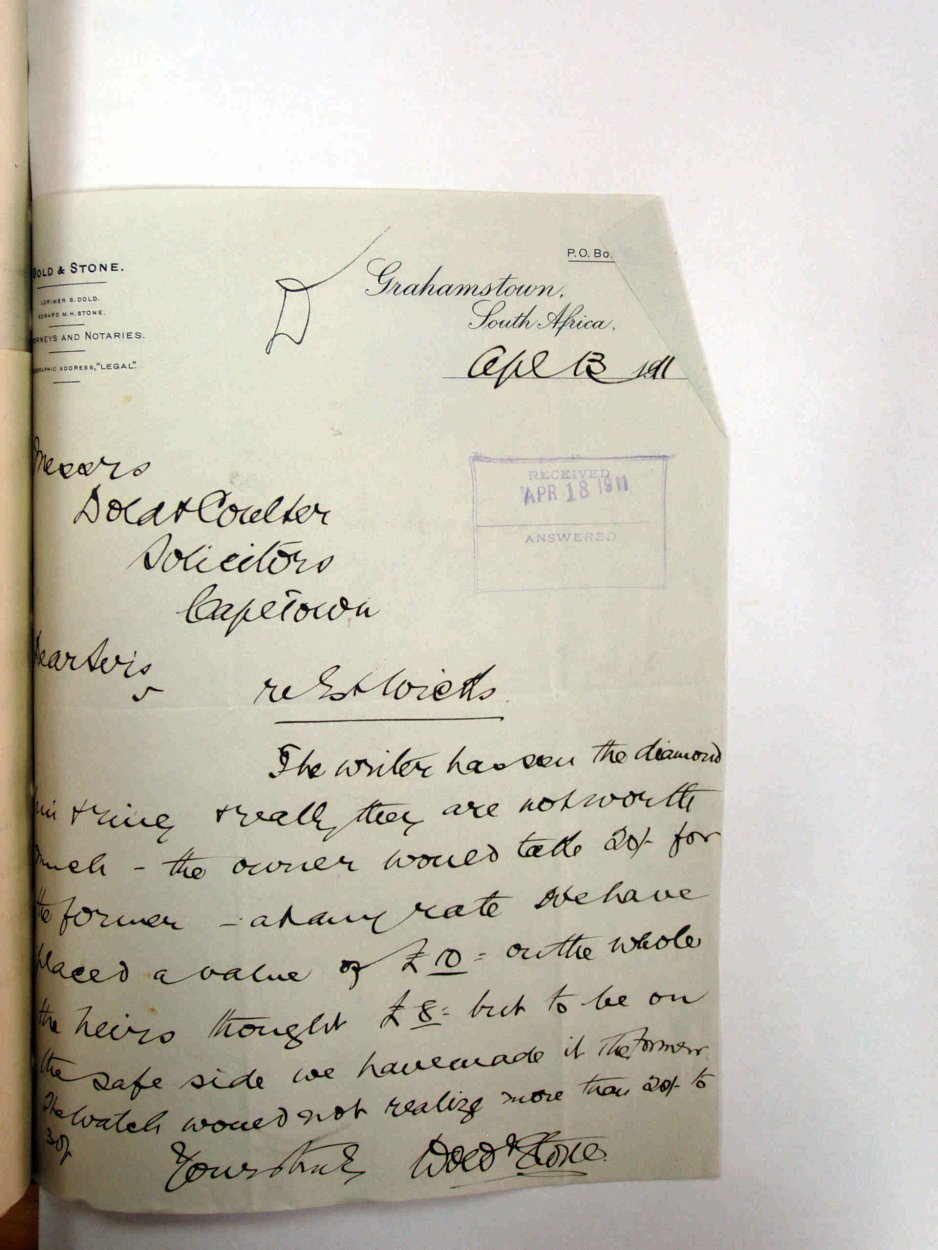 DOLD & STONE.
LORIMER B. DOLD.
EDWARD M.H. STONE.
RNEYS AND NOTARIES.
GRAPHIC ADDRESS, "LEGAL".
P.O. Bo
Grahamstown,
South Africa,
Apl 13 1911
RECEIVED
APR 18 1911
ANSWERED
Messrs
Dold & Coulter
Solicitors
CapeTown
Dear Sirs
re Est Wicks.
The writer has seen the diamond
pin & ring & really they are not worth
much - the owner would take 20/- for
the former - at any rate we have
placed a value of £10 = on the whole
the heirs thought £8 = but to be on
the safe side we have made it the former
The watch would not realize more than 20/- to
30/-
Yours truly Dold & Stone